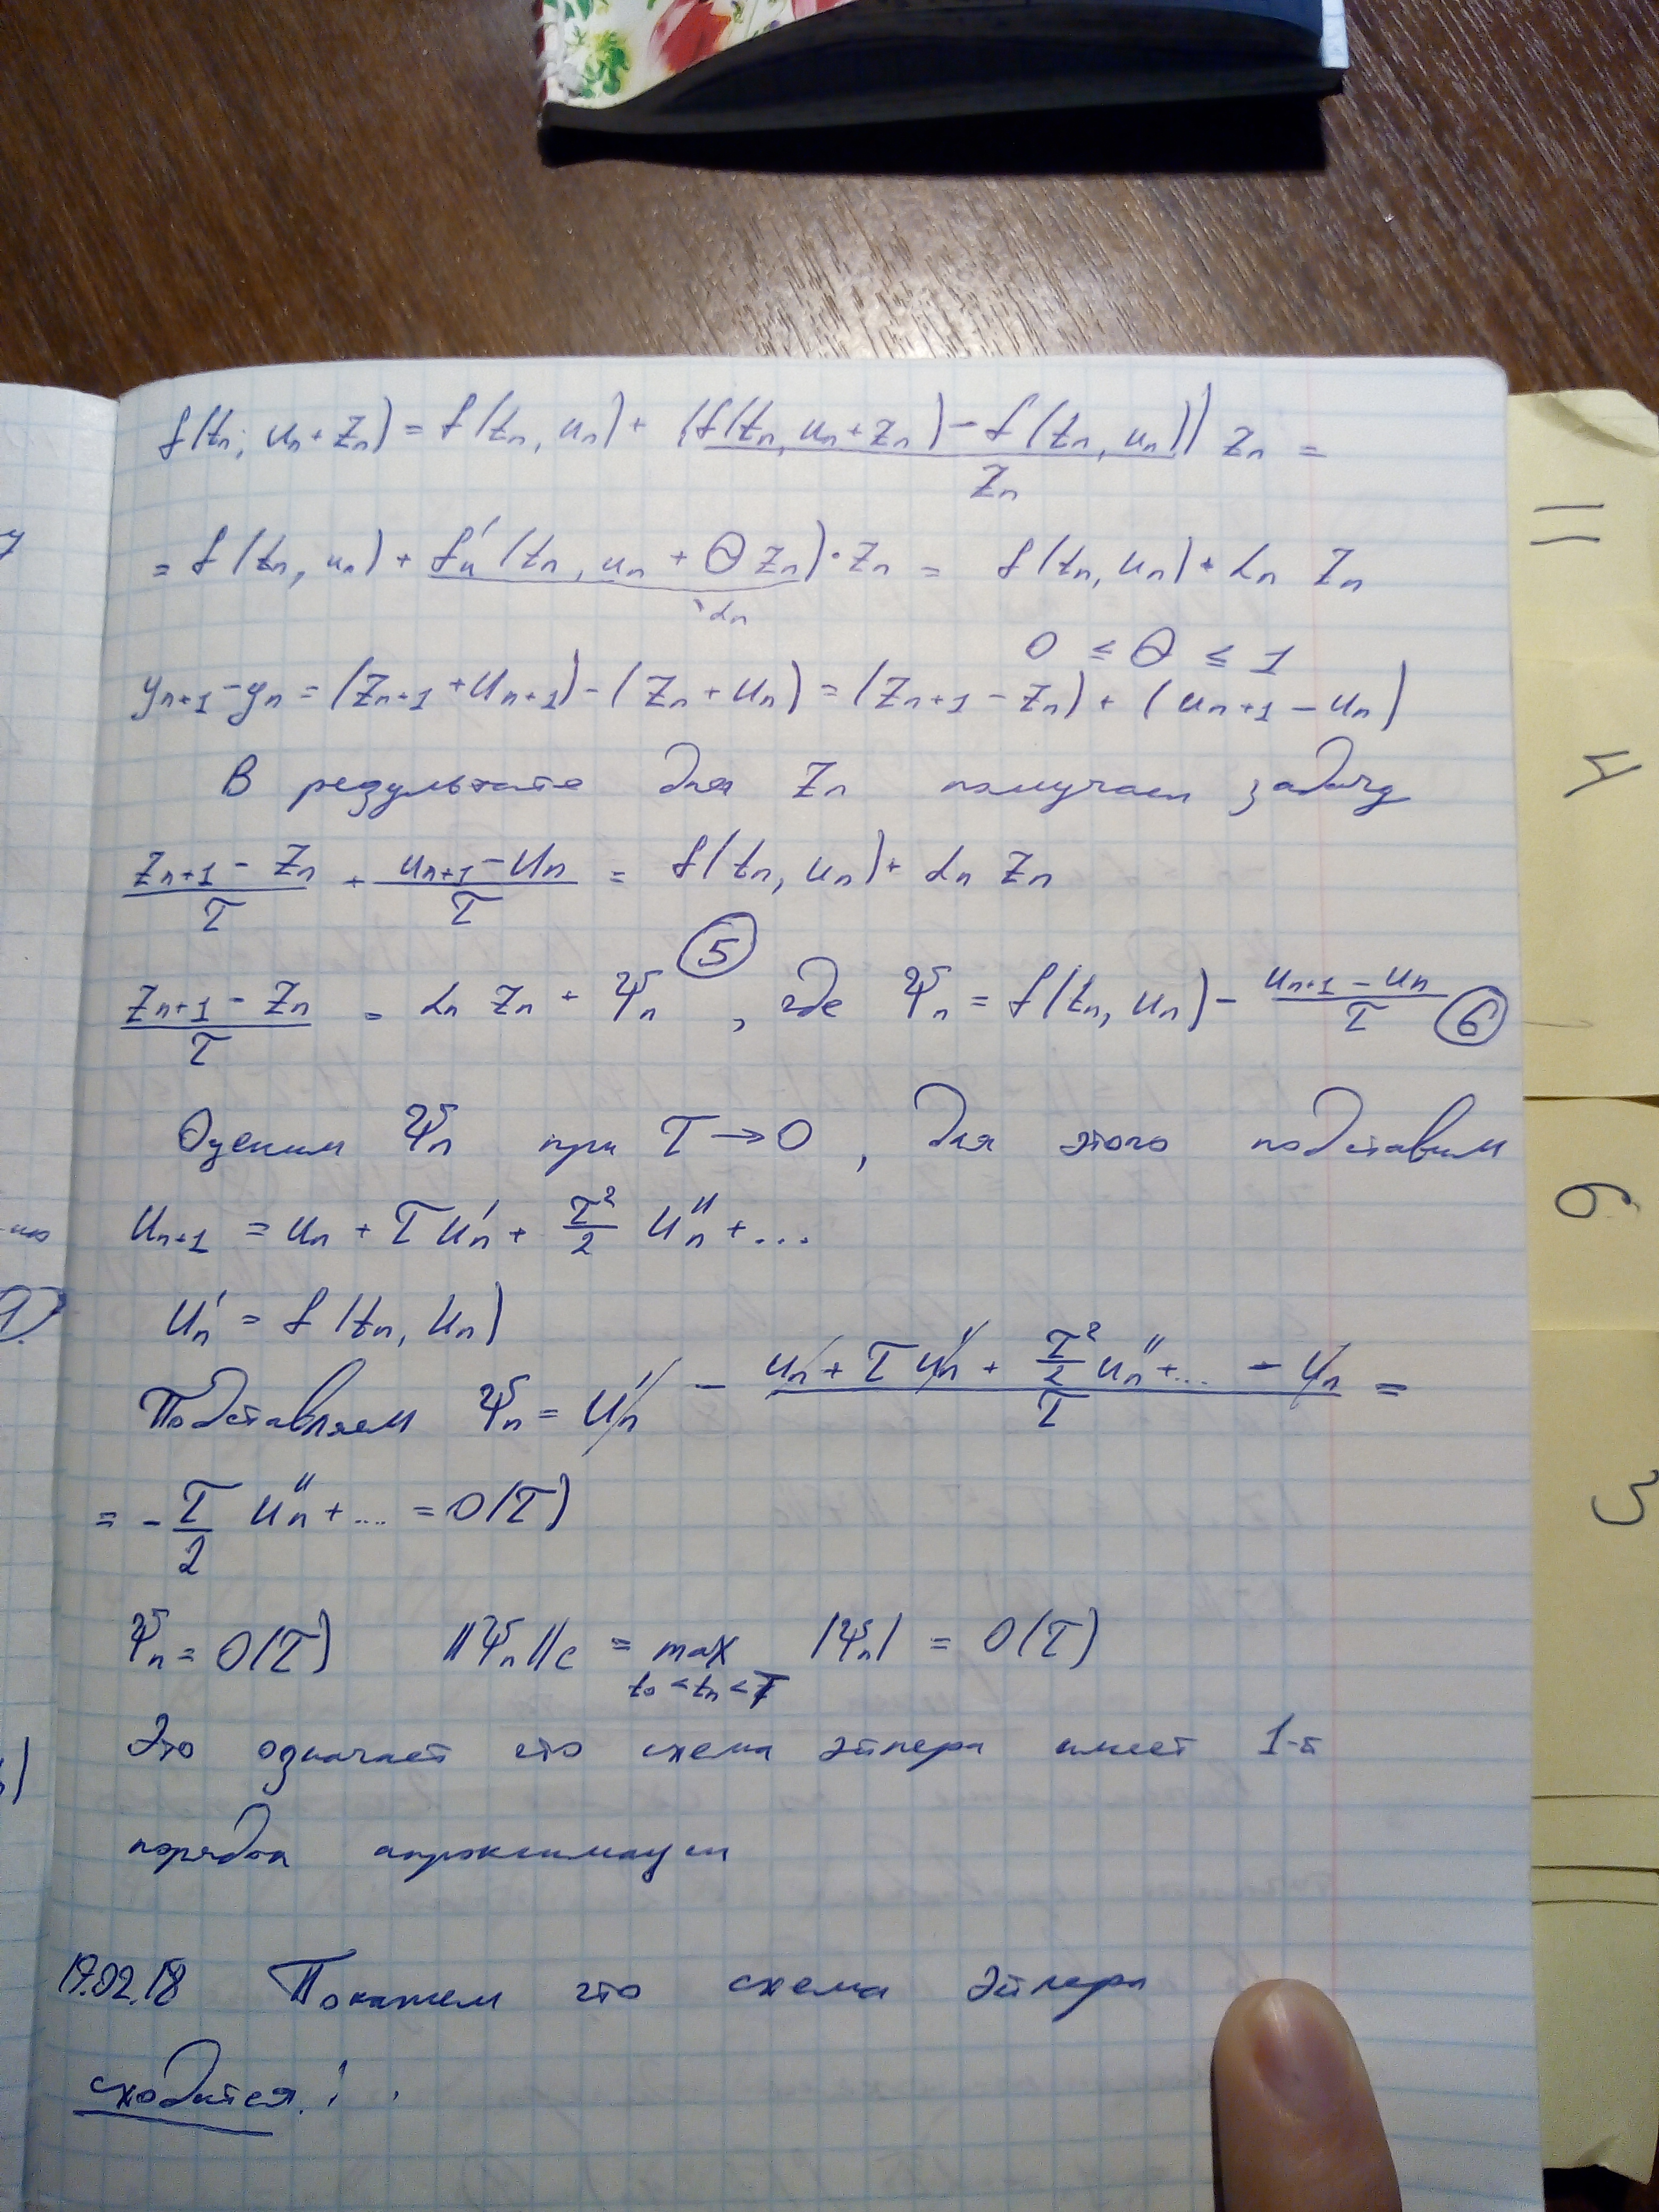 f(tn; un + Zn) = f(tn, un) + (f(tn, un + zn) − f(tn, un)) / Zn · Zn =
= f(tn, un) + f'u (tn, un + Θ Zn) · Zn = f(tn, un) + αn Zn
αn
0 ≤ Θ ≤ 1
yn+1 − yn = (Zn+1 + un+1) − (Zn + un) = (Zn+1 − Zn) + (un+1 − un)
В результате для Zn получаем задачу
(Zn+1 − Zn)/τ + (un+1 − un)/τ = f(tn, un) + αn Zn
(Zn+1 − Zn)/τ = αn Zn + Ψn (5), где Ψn = f(tn, un) − (un+1 − un)/τ (6)
Оценим Ψn при τ → 0, для этого подставим
un+1 = un + τ u'n + τ²/2 u''n + ...
u'n = f(tn, un)
Подставляем Ψn = u'n − (un + τ u'n + τ²/2 u''n + ... − un)/τ =
= − τ/2 u''n + .... = O(τ)
Ψn = O(τ) ||Ψn||c = max |Ψn| = O(τ)
t0 < tn < T
Это означает что схема Эйлера имеет 1-й
порядок апроксимации
19.02.18 Покажем что схема Эйлера
сходится!
4
6
3